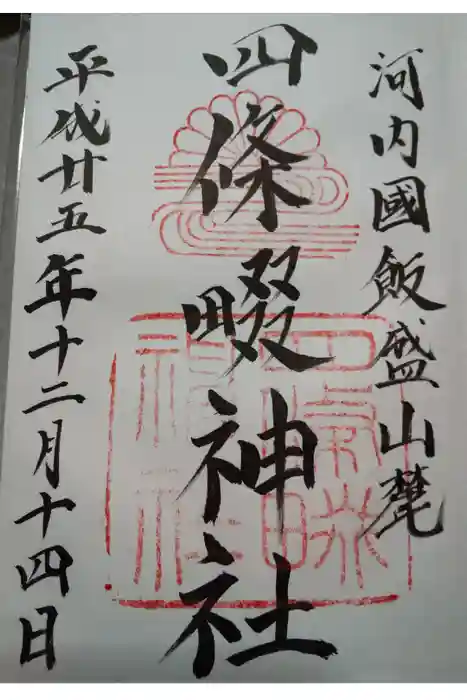 河内國飯盛山麓
四條畷神社
平成廿五年十二月十四日